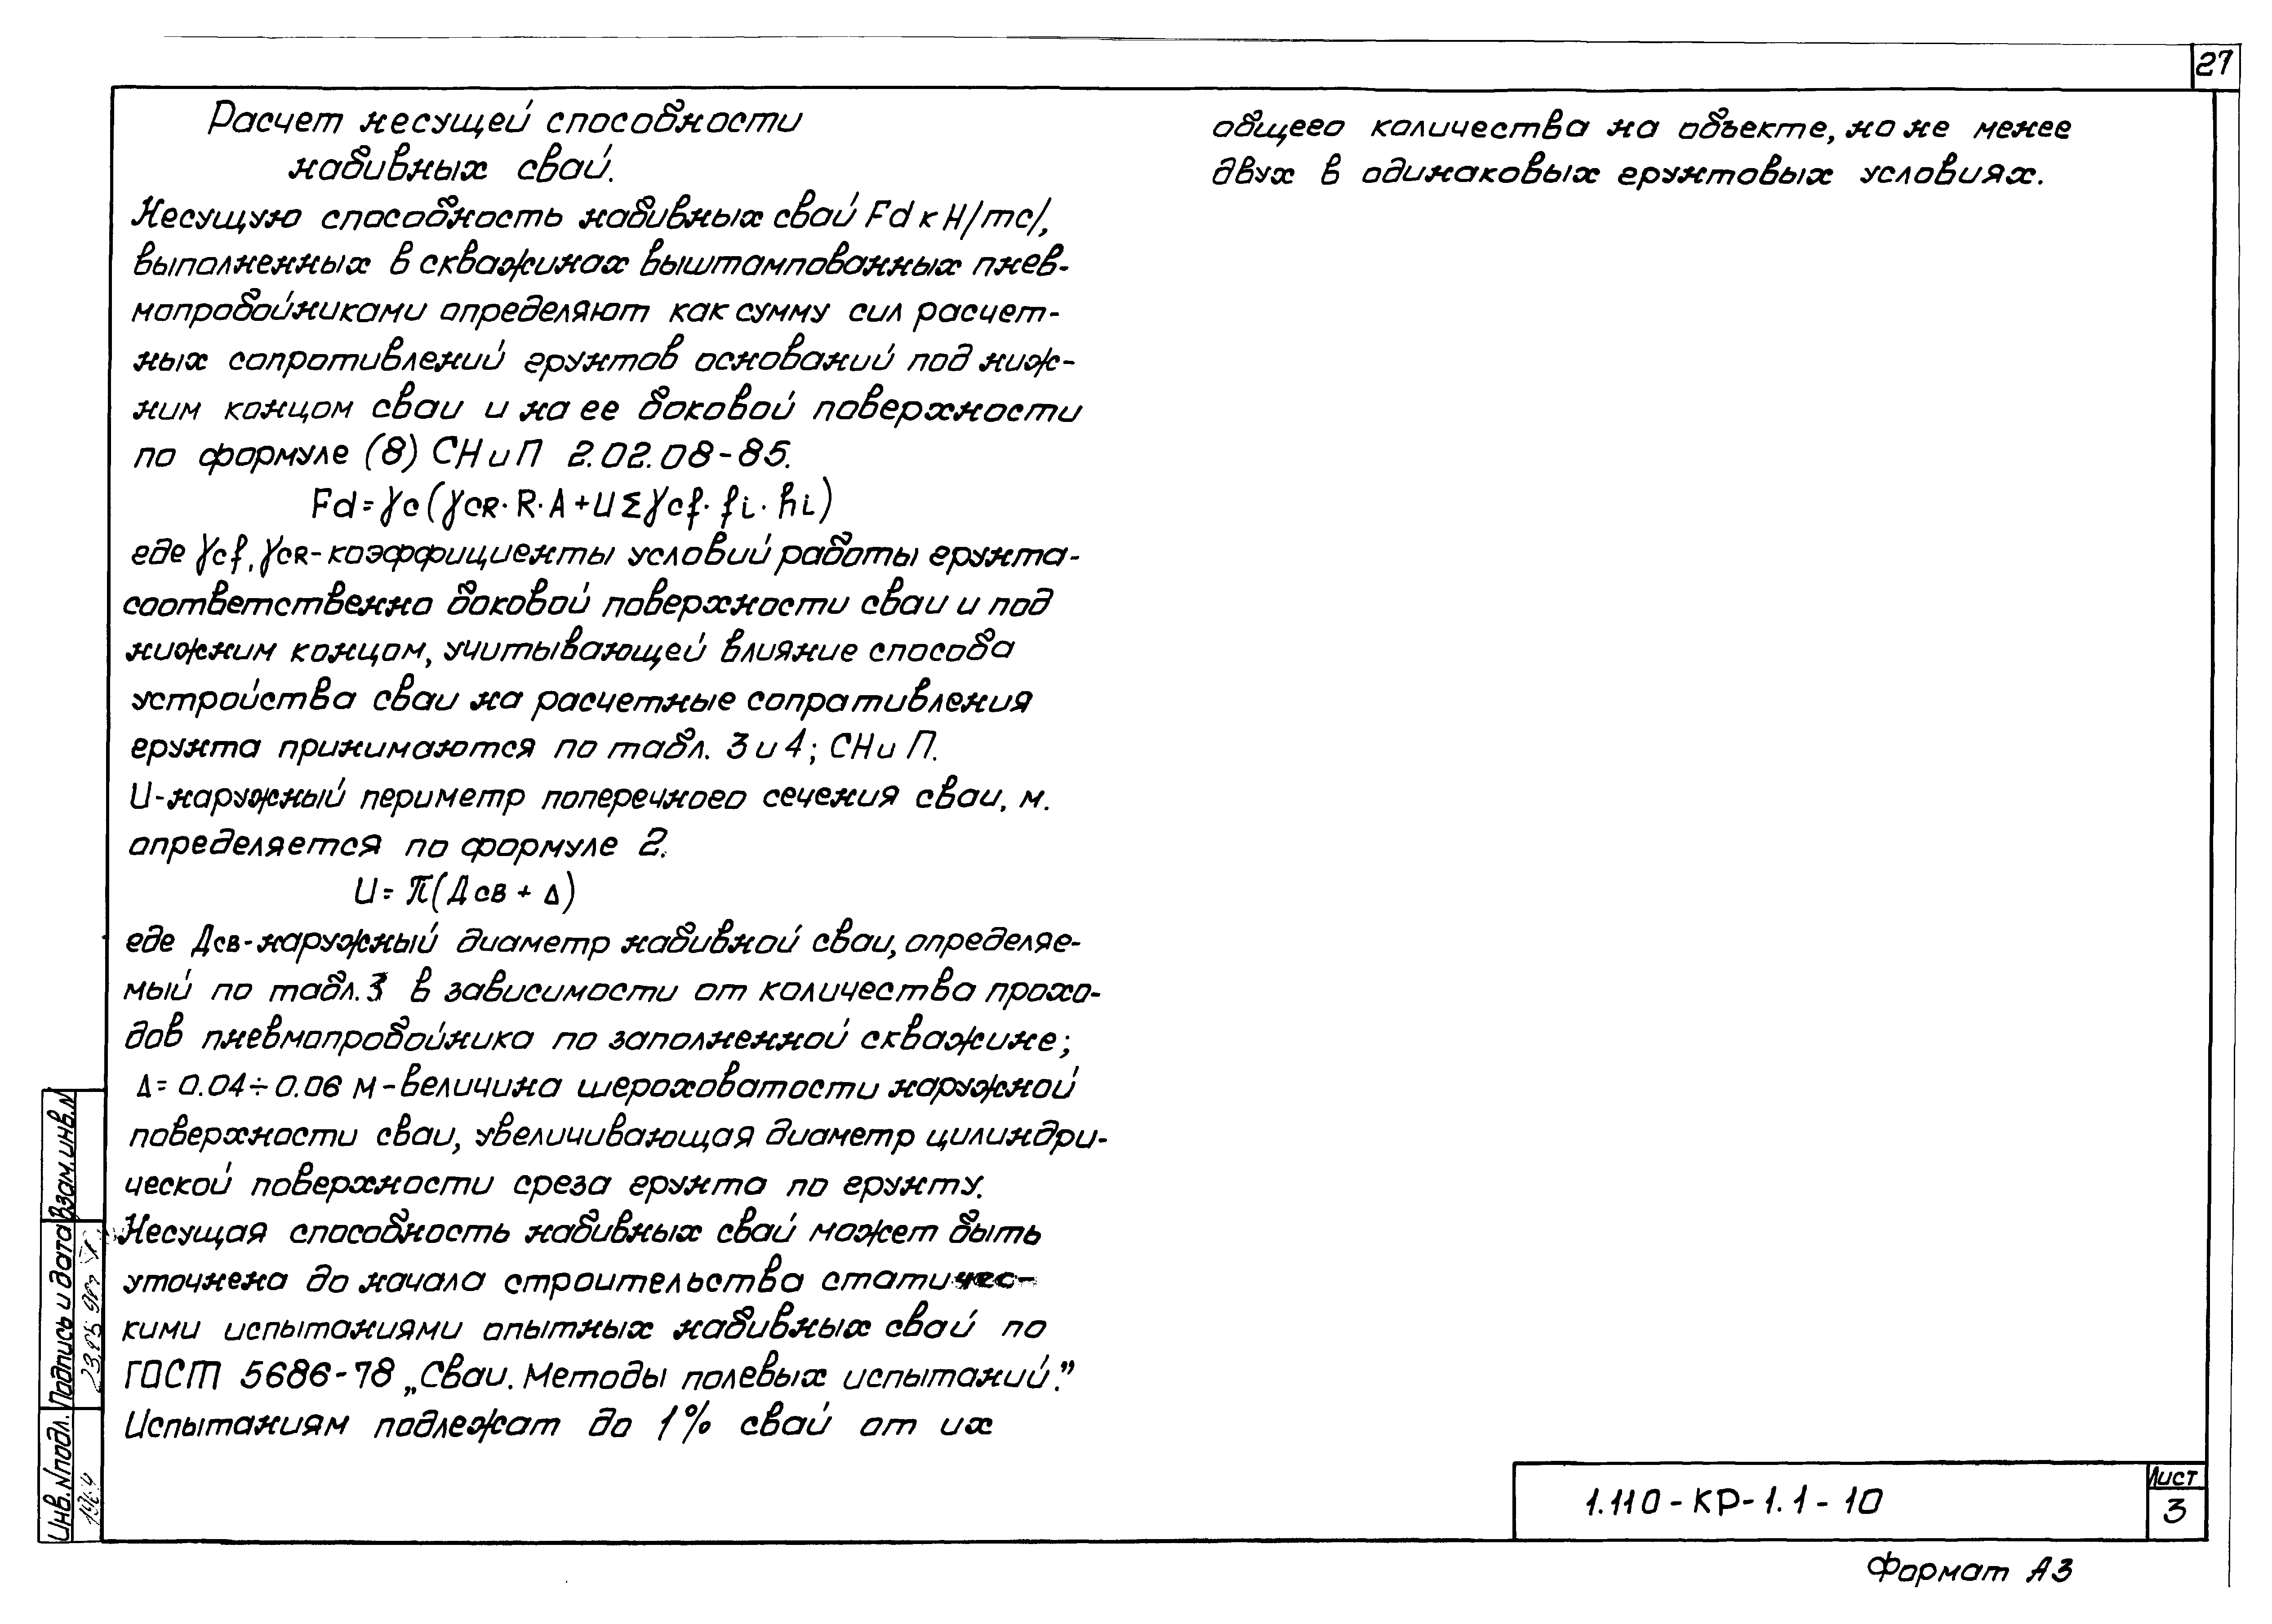 27
Расчет несущей способности
набивных свай.
Несущую способность набивных свай Fd кН/тс/,
выполненных в скважинах выштампованных пнев-
мопробойниками определяют как сумму сил расчет-
ных сопротивлений грунтов оснований под ниж-
ним концом сваи и на ее боковой поверхности
по формуле (8) СНиП 2.02.08-85.
Fd=γc(γcR·R·A+U∑γcf·fi·hi)
где γcf, γcR-коэффициенты условий работы грунта-
соответственно боковой поверхности сваи и под
нижним концом, учитывающей влияние способа
устройства сваи на расчетные сопротивления
грунта принимаются по табл. 3 и 4; СНиП.
U-наружный периметр поперечного сечения сваи, м.
определяется по формуле 2.
U= π(Дсв + Δ)
где Дсв-наружный диаметр набивной сваи, определяе-
мый по табл.3 в зависимости от количества прохо-
дов пневмопробойника по заполненной скважине;
Δ= 0.04÷0.06 м-величина шероховатости наружной
поверхности сваи, увеличивающая диаметр цилиндри-
ческой поверхности среза грунта по грунту.
Несущая способность набивных свай может быть
уточнена до начала строительства статичес-
кими испытаниями опытных набивных свай по
ГОСТ 5686-78 „Сваи. Методы полевых испытаний."
Испытаниям подлежат до 1% свай от их
общего количества на объекте, но не менее
двух в одинаковых грунтовых условиях.
Взам.инв.N
Подпись и дата
Инв.Nподл.
1.110-КР-1.1-10
Лист
3
Формат А3